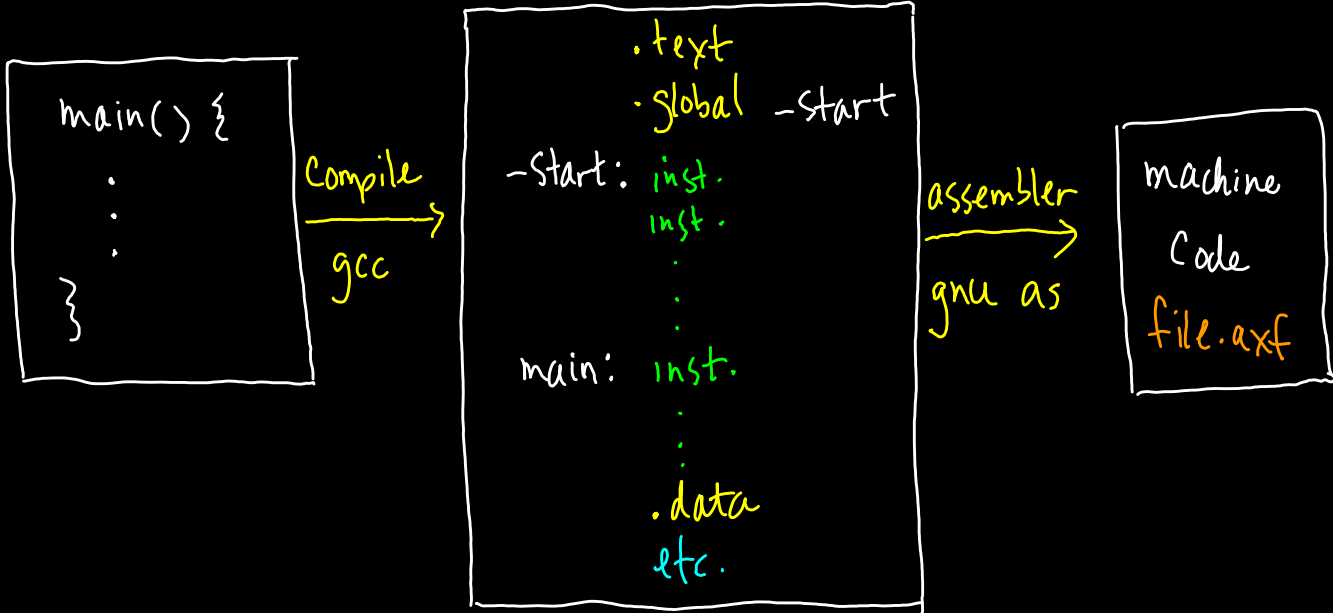 main() {
.
.
.
}
Compile
gcc
.text
.global _start
_start: inst.
inst.
.
.
.
main: inst.
.
.
.
.data
etc.
assembler
gnu as
machine
Code
file.axf